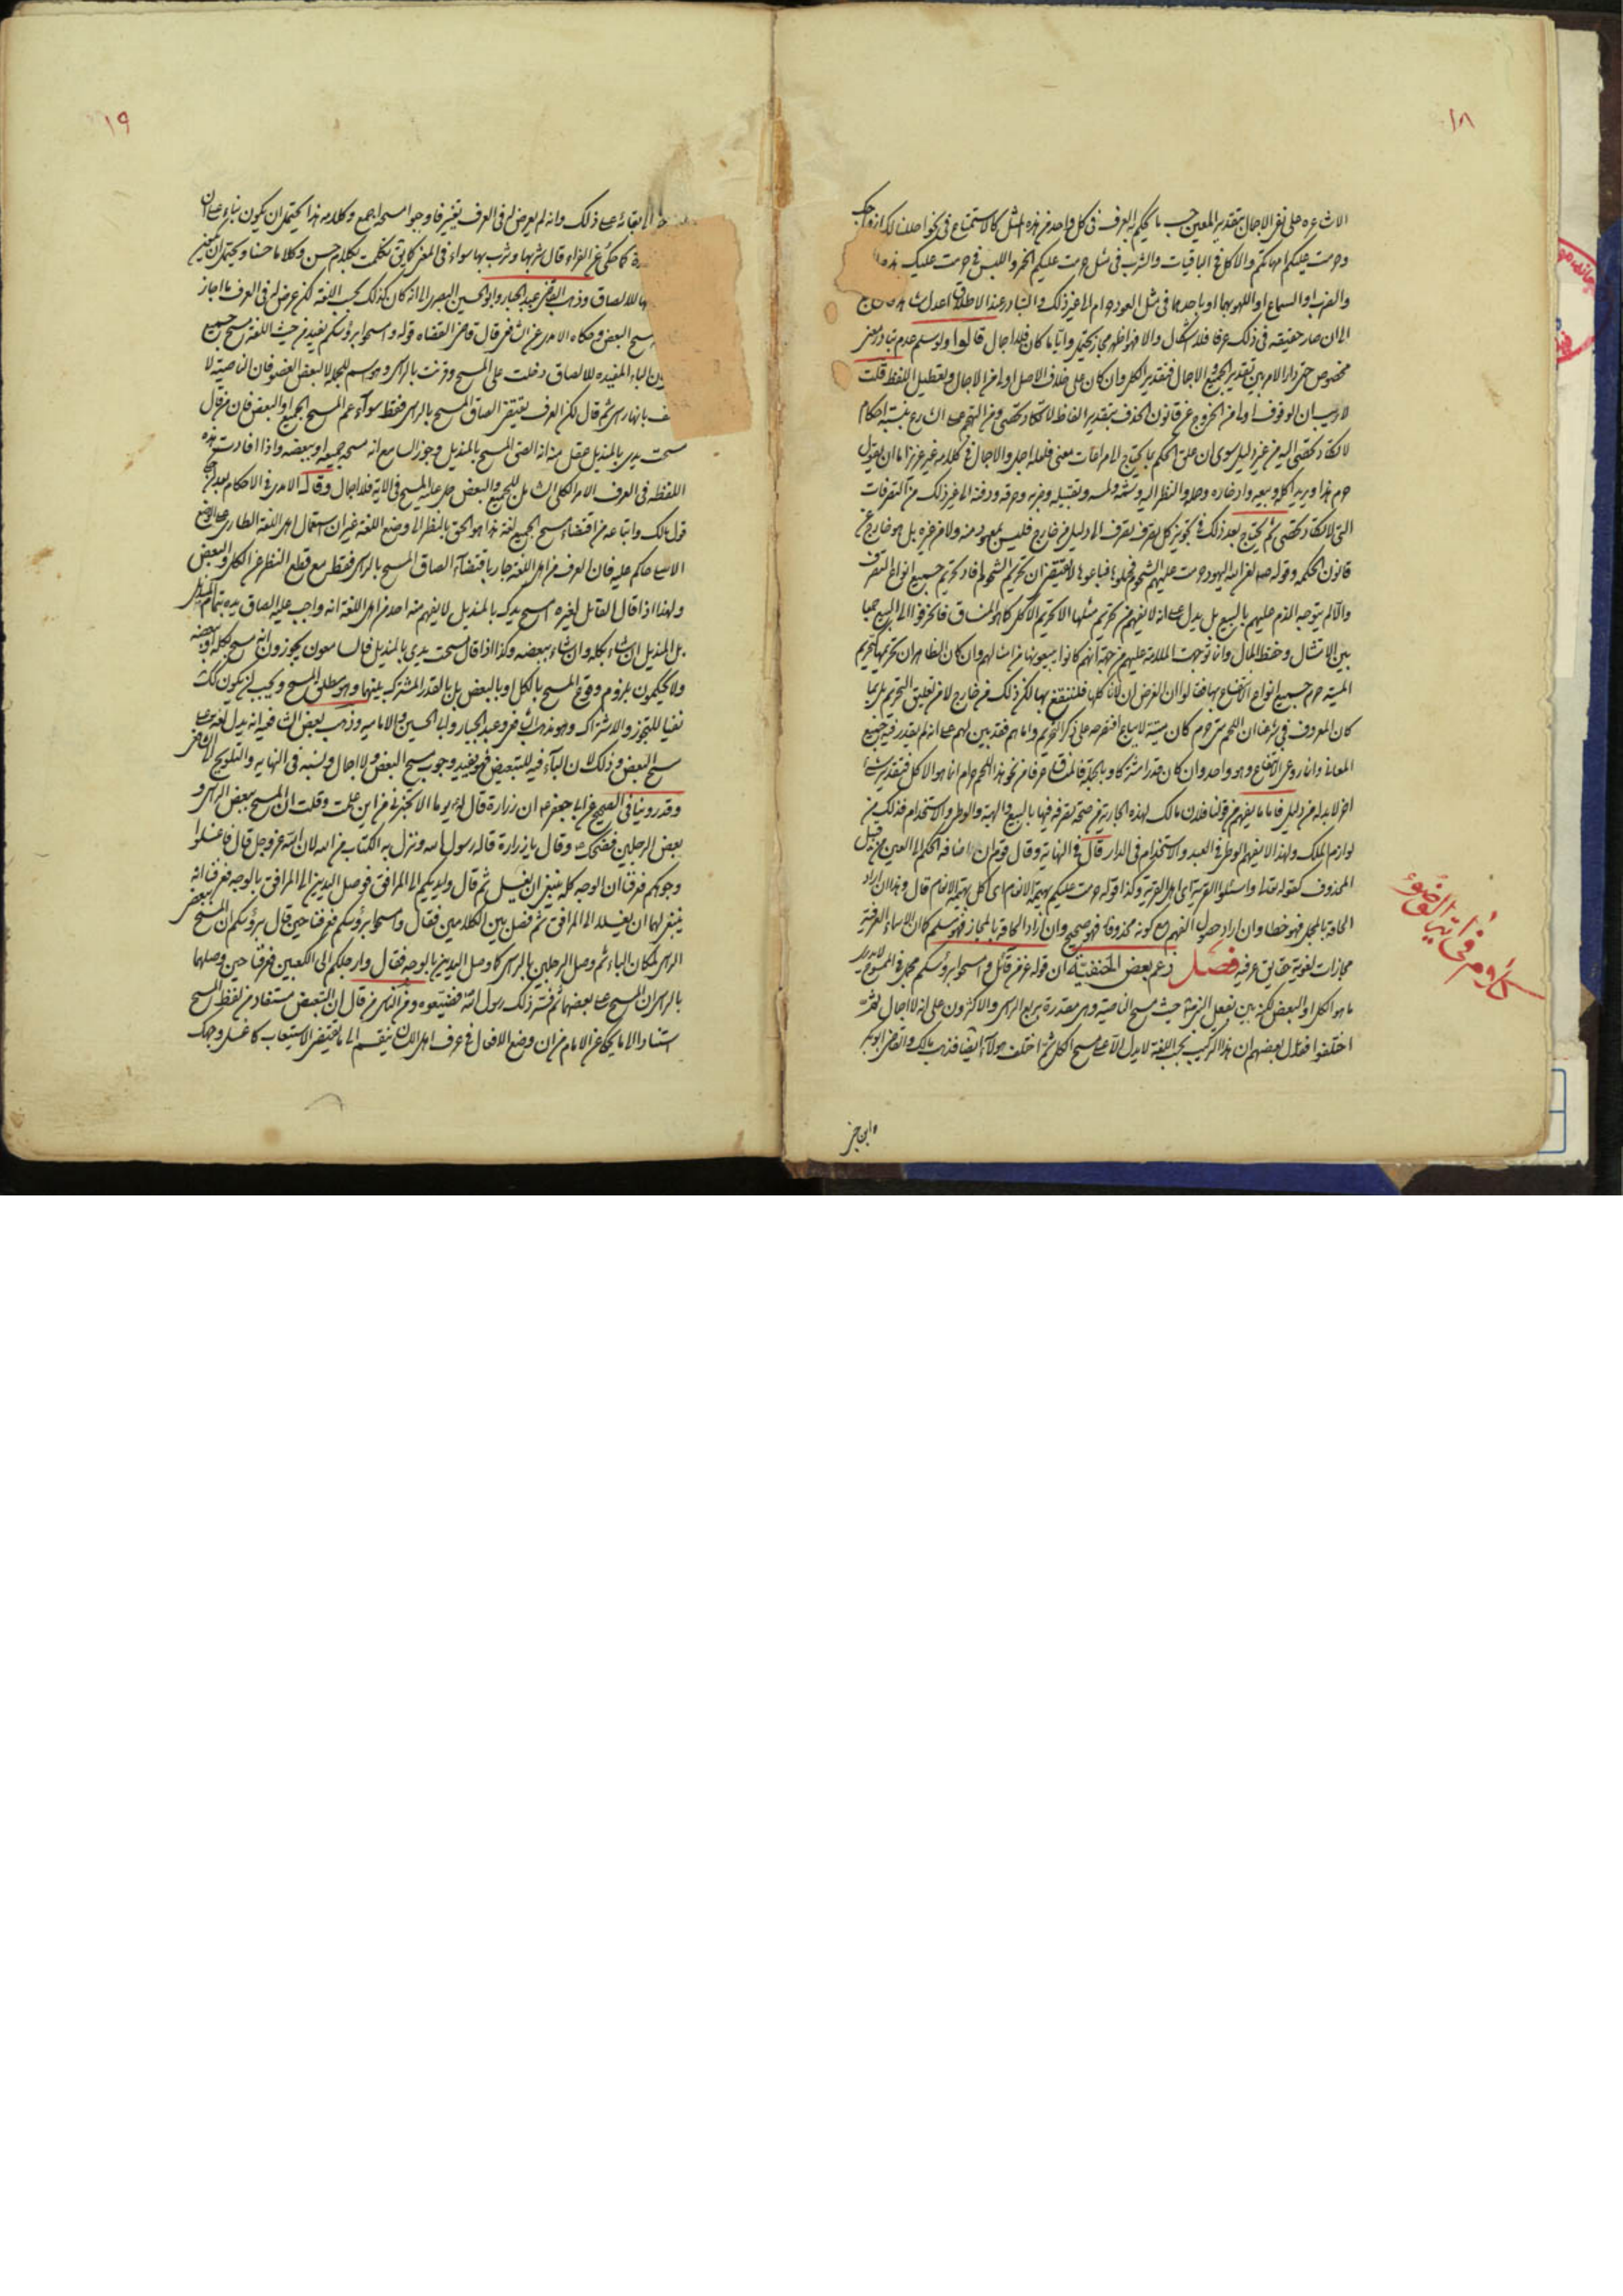 ١٨
الاشاعره على نفي الاجمال بتقدير المعين حسب ما يحكم به العرف في كل واحد من هذه المثل كالاستمتاع في نحو احللنا لك ازواجك
وحرمت عليكم امهاتكم والاكل في الباقيات والشرب في مثل حرمت عليكم الخمر واللبس في حرمت عليك هذا
والضرب او السماع او اللهو بهما او باحدهما في مثل العود حرام الى غير ذلك والتبادر عند الاطلاق اعدل
الى ان صار حقيقه في ذلك عرفا فلا اشكال والا فهو اظهر مجاز يحتمل واياما كان فلا اجمال قالوا ولو سلم عدم تبادر معنى
مخصوص حتى دار الامر بين تقدير الجميع والاجمال فتقدير الكل وان كان على خلاف الاصل اولى من الاجمال وتعطيل اللفظ قلت
لا ريب ان الوقوف اولى من الخروج عن قانون الحذف بتقدير الفاظ لا تكاد تحصى ومن التهجم على الشارع بنسبة احكام
لا تكاد تحصى اليه من غير دليل سوى ان علق الحكم بما يحتاج الى مراعات معنى فلعله اجل والاجمال في كلامه غير عزيز اما ان يقول
حرم هذا ويريد اكله وبيعه وادخاره وحمله والنظر اليه وشمه ولمسه وتقبيله وضربه وحرقه ودفنه الى غير ذلك من التصرفات
التي لا تكاد تحصى ثم يحتاج بعد ذلك في تجويز كل تصرف تصرف الى دليل من خارج فليس بمعهود منه ولا من غيره بل هو خارج عن
قانون الحكمه وقوله صلى لعن الله اليهود حرمت عليهم الشحوم فجملوها فباعوها لا يقتضي ان تحريم الشحوم افاد تحريم جميع انواع التصرف
والا لم يتوجه الذم عليهم بالبيع بل يدل على انه لا يفهم من تحريم مثلها الا تحريم الاكل كما هو المنساق فانحرفوا الى البيع جمعا
بين الامتثال وحفظ المال وانما توجهت الملامة عليهم من جهة انهم كانوا يبيعونها من امثالهم وان كان الظاهر ان تحريمها كتحريم
الميته حرم جميع انواع الانتفاع بها فقالوا ان الغرض ان لا ناكلها فلننتفع بها لكن ذلك من خارج لا من تعليق التحريم بل بما
كان المعروف في شرعنا ان اللحم متى حرم كان ميتة لا يباع اقتصر صلى على ذكر التحريم واياهم فقد بين لهم على انه لم يقدر فيه جميع
المعاني وانما روعي الانتفاع وهو واحد وان كان قدرا مشتركا وبالجملة فالمنساق عرفا من نحو هذا اللحم حرام انما هو الاكل فتقدير شئ
اخر لا بد له من دليل فاما ما يفهم من قولنا فلان مالك لهذه الجارية من صحة تصرفه فيها بالبيع والهبة والوطي والاستخدام فذلك من
لوازم الملك ولهذا لا يفهم الوطي في العبد والاستخدام في الدار قال في النهاية وقال قوم ان اضافة الحكم الى العين من قبيل
المحذوف كقوله تعالى واسئلوا القرية اي اهل القرية وكذا قوله حرمت عليكم بهيمة الانعام اي اكل بهيمة الانعام قال وهذا ان اراد
الحاقه بالمجمل فهو خطاء وان اراد حصول الفهم مع كونه محذوفا فهو صحيح وان اراد الحاقه بالمجاز فهو مسلم كان الاسماء العرفية
مجازات لغوية حقايق عرفيه فصل زعم بعض الحنفيّة ان قوله عز من قائل وامسحوا برؤسكم مجمل في الممسوح
ما هو الكل او البعض لكنه بين بفعل النبي حيث مسح الناصية وهي مقدرة بربع الراس والاكثرون على انه لا اجمال ثم
اختلفوا فقال بعضهم ان هذا التركيب بحسب اللغة لا يدل الا على مسح الكل ثم اختلف هولاء ايضا فذهب مالك والقاضي ابو بكر
وابن جني
كلام في اية الوضوء
١٩
بقائه على ذلك وانه لم يعرض له في العرف تغيير فاوجبوا مسح الجميع وكلامه هذا يحتمل ان يكون بناء على ان
كما حكى عن الفراء قال شربها وشرب بها سواء في المعنى كما يق تكلمت بكلام حسن وكلاما حسنا ويحتمل ان
للالصاق وذهب القاضي عبد الجبار وابو الحسين البصري الى انه كان كذلك بحسب اللغة لكن عرض له في العرف ما اجاز
مسح البعض وحكاه الامدي عن الشافعي قال قاضي القضاه قوله وامسحوا برؤسكم يفيد من حيث اللغة مسح جميع
لان الباء المفيده للالصاق دخلت على المسح وقرنت بالراس وهو اسم للجملة لا لبعض العضو فان الناصية لا
بانها راس ثم قال لكن العرف يقتضي الصاق المسح بالراس فقط سواء عم المسح الجميع او البعض فان من قال
مسحت يدي بالمنديل عقل منه انه الصق المسح بالمنديل وجوز السامع انه مسحه جميعه او ببعضه واذا افادت هذه
اللفظه في العرف الامر الكلي الشامل للجميع والبعض حمل عليه المسح في الاية فلا اجمال وقال الامدي في الاحكام
قول مالك واتباعه من اقتضاء مسح الجميع لغة هذا هو الحق بالنظر الى وضع اللغة غير ان استعمال اهل اللغة الطاري على الوضع
الاصلي حاكم عليه فان العرف من اهل اللغة جار باقتضاء الصاق المسح بالراس فقط مع قطع النظر عن الكل والبعض
ولهذا اذا قال القائل لغيره امسح يدك بالمنديل لا يفهم منه احد من اهل اللغة انه واجب عليه الصاق يده بتمام المنديل
بل بالمنديل ان شاء بكله وان شاء ببعضه وكذا اذا قال مسحت يدي بالمنديل فالسامعون يجوزون انه مسح بكله او ببعضه
ولا يحكمون بلزوم وقوع المسح بالكل او بالبعض بل بالقدر المشترك بينهما وهو مطلق المسح ويجب ان يكون كك
نفيا للتجوز والاشتراك وهو مذهب الشافعي وعبد الجبار وابي الحسين والاماميه وذهب بعض الشافعيه انه يدل لغة على
مسح البعض وذلك لان الباء فيه للتبعيض فهو يفيد وجوب مسح البعض ولا اجمال ونسبه في النهايه والتلويح الى الشافعي
وقد روينا في الصحيح عن ابي جعفر ان زرارة قال له يوما الا تخبرني من اين علمت وقلت ان المسح ببعض الراس و
بعض الرجلين فضحك وقال يا زرارة قاله رسول الله ونزل به الكتاب من الله لان الله عز وجل قال فاغسلوا
وجوهكم فعرفنا ان الوجه كله ينبغي ان يغسل ثم قال وايديكم الى المرافق فوصل اليدين الى المرافق بالوجه فعرفنا انه
ينبغي لهما ان يغسلا الى المرافق ثم فصل بين الكلامين فقال وامسحوا برؤسكم فعرفنا حين قال برؤسكم ان المسح ببعض
الراس لمكان الباء ثم وصل الرجلين بالراس كما وصل اليدين بالوجه فقال وارجلكم الى الكعبين فعرفنا حين وصلهما
بالراس ان المسح على بعضهما ثم فسر ذلك رسول الله فضيعوه ومن الناس من قال ان التبعيض مستفاد من لفظ المسح
استنادا الى ما يحكى عن الامام من ان وضع الافعال في عرف اهل اللسان ينقسم الى ما يقتضي الاستيعاب كاغسل وجهك